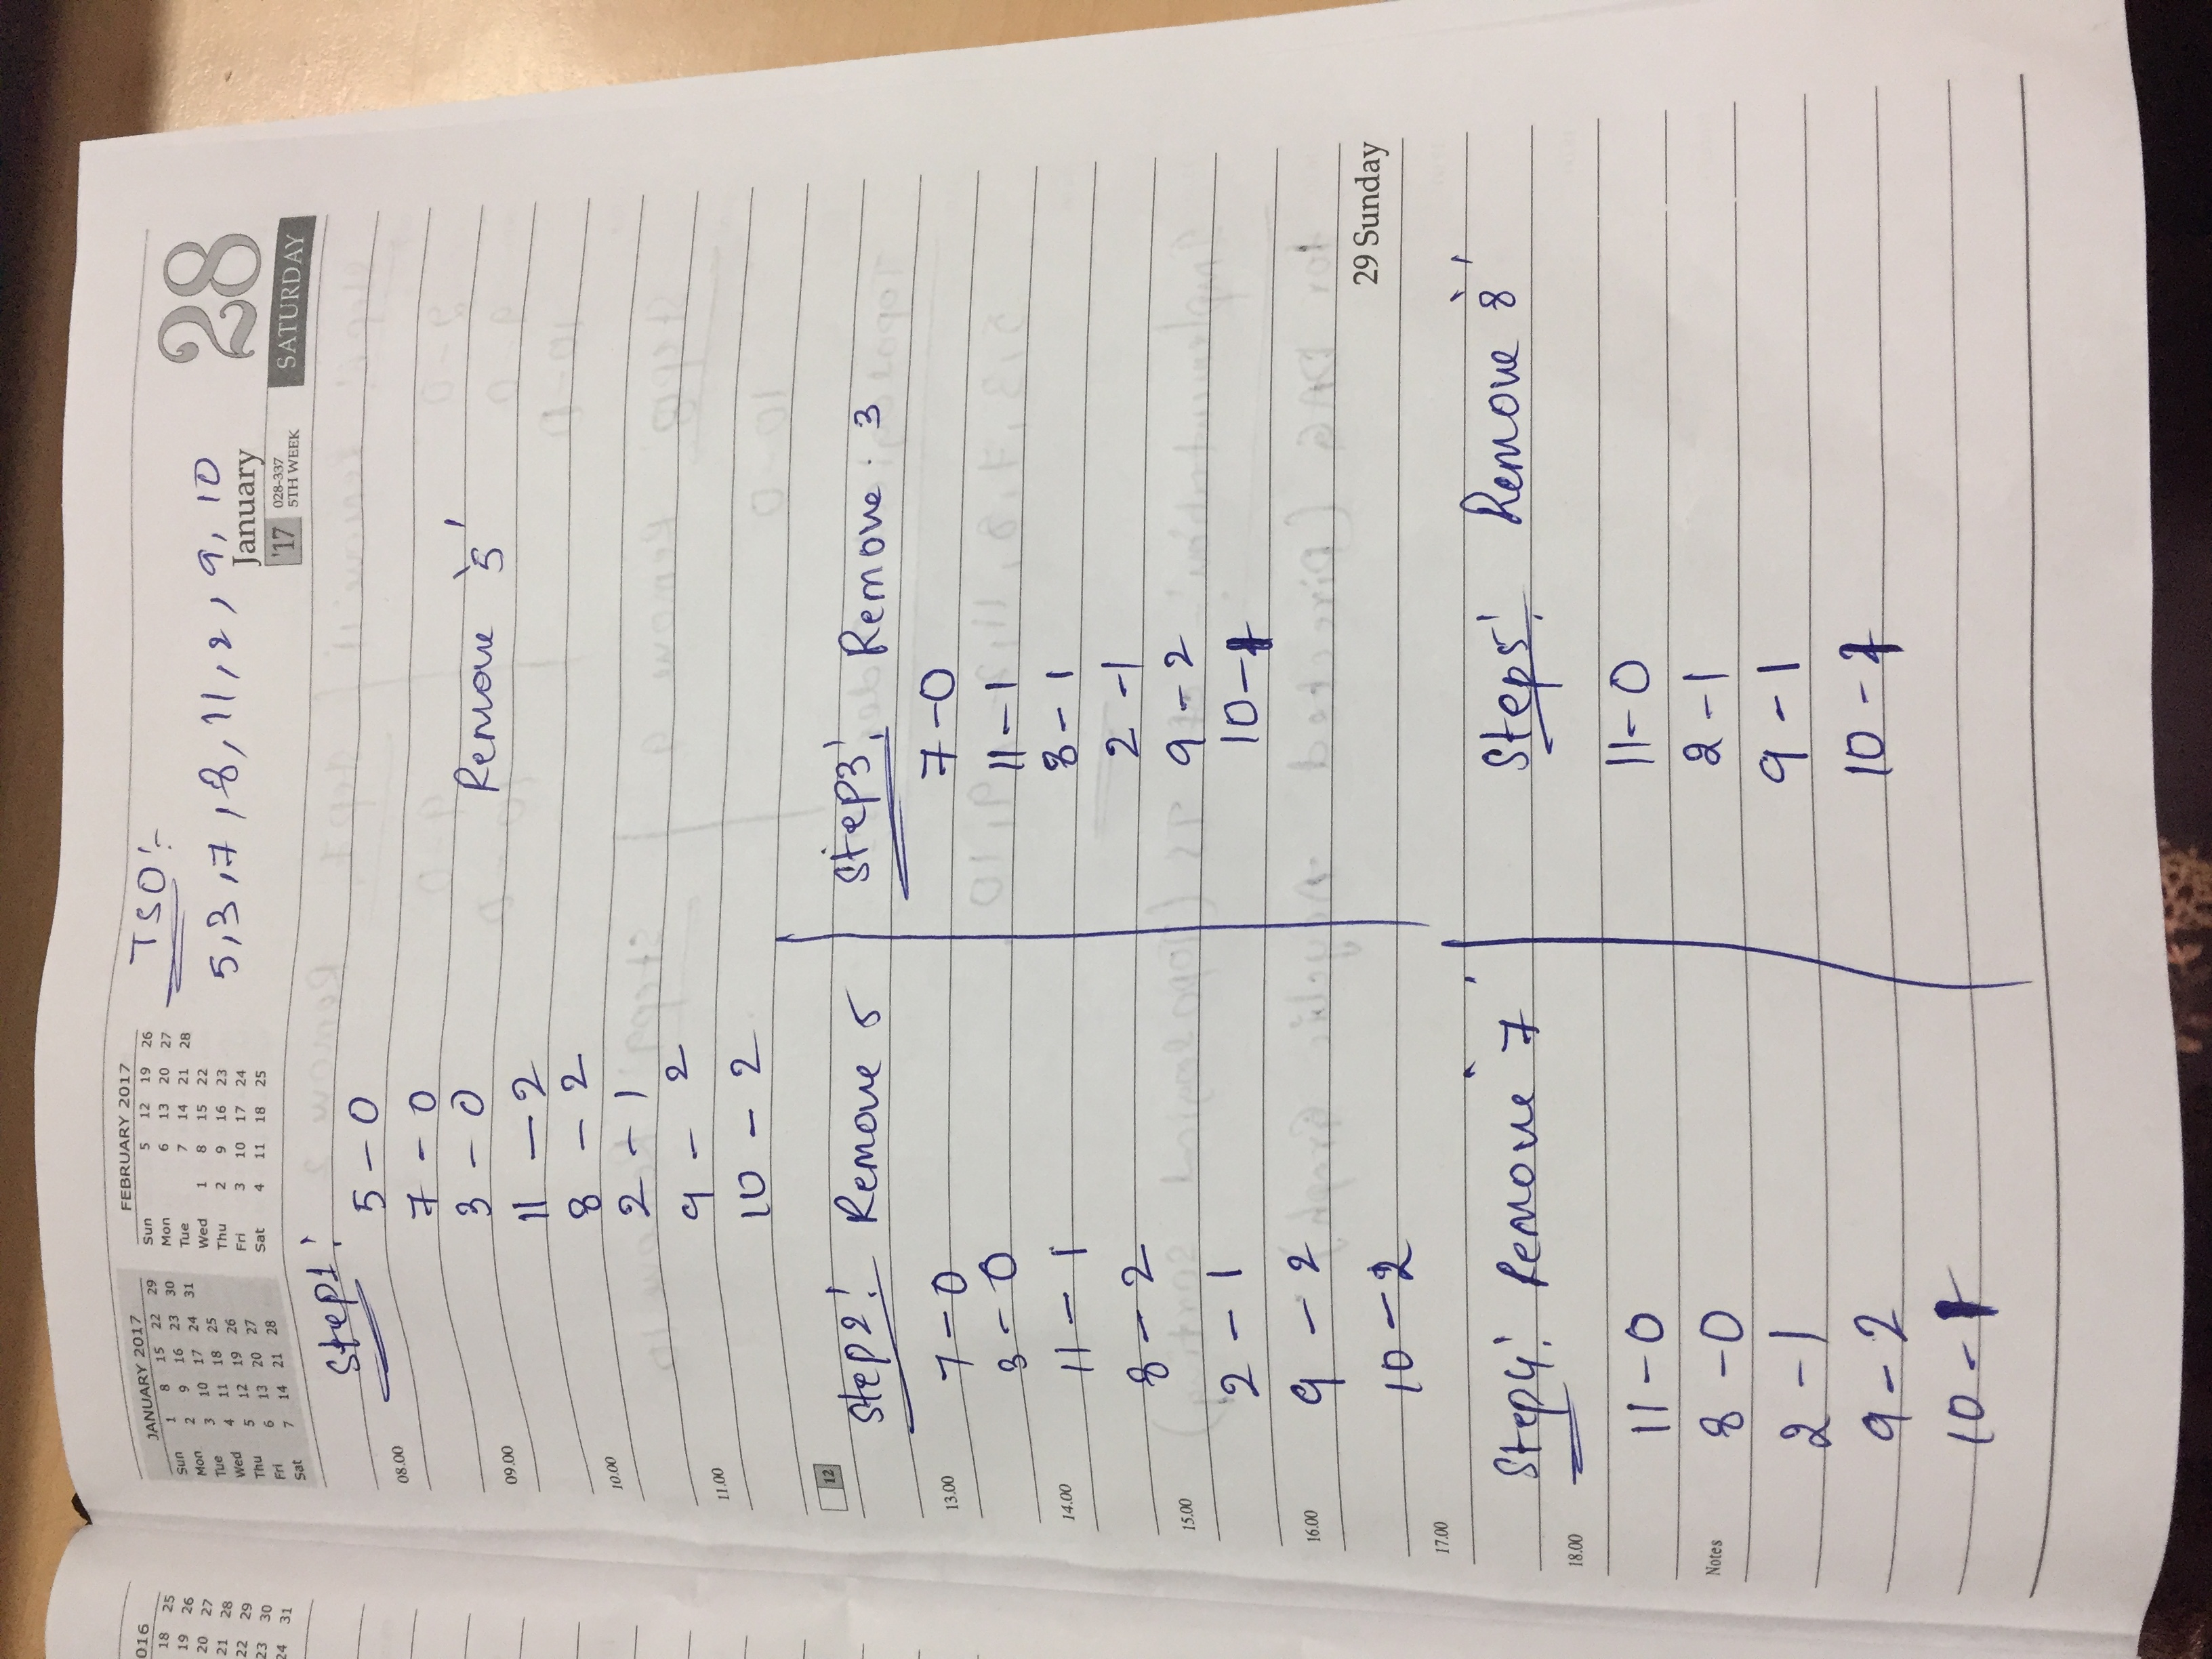 016
18 25
19 26
20 27
21 28
22 29
23 30
24 31
JANUARY 2017
Sun 1 8 15 22 29
Mon 2 9 16 23 30
Tue 3 10 17 24 31
Wed 4 11 18 25
Thu 5 12 19 26
Fri 6 13 20 27
Sat 7 14 21 28
FEBRUARY 2017
Sun 5 12 19 26
Mon 6 13 20 27
Tue 7 14 21 28
Wed 1 8 15 22
Thu 2 9 16 23
Fri 3 10 17 24
Sat 4 11 18 25
TSO:-
5,3,7,8,11,2,9,10
28
January
'17 028-337
5TH WEEK
SATURDAY
Step1:
5-0
08.00
7-0
3-0
Remove '5'
09.00
11-2
8-2
10.00
2-1
9-2
11.00
10-2
12
Step2: Remove 5
13.00
7-0
3-0
14.00
11-1
8-2
15.00
2-1
16.00
9-2
10-2
17.00
Step3: Remove 3
7-0
11-1
8-1
2-1
9-2
10-1
29 Sunday
Step4: Remove '7'
18.00
11-0
Notes
8-0
2-1
9-2
10-1
Step5: Remove '8'
11-0
2-1
9-1
10-1